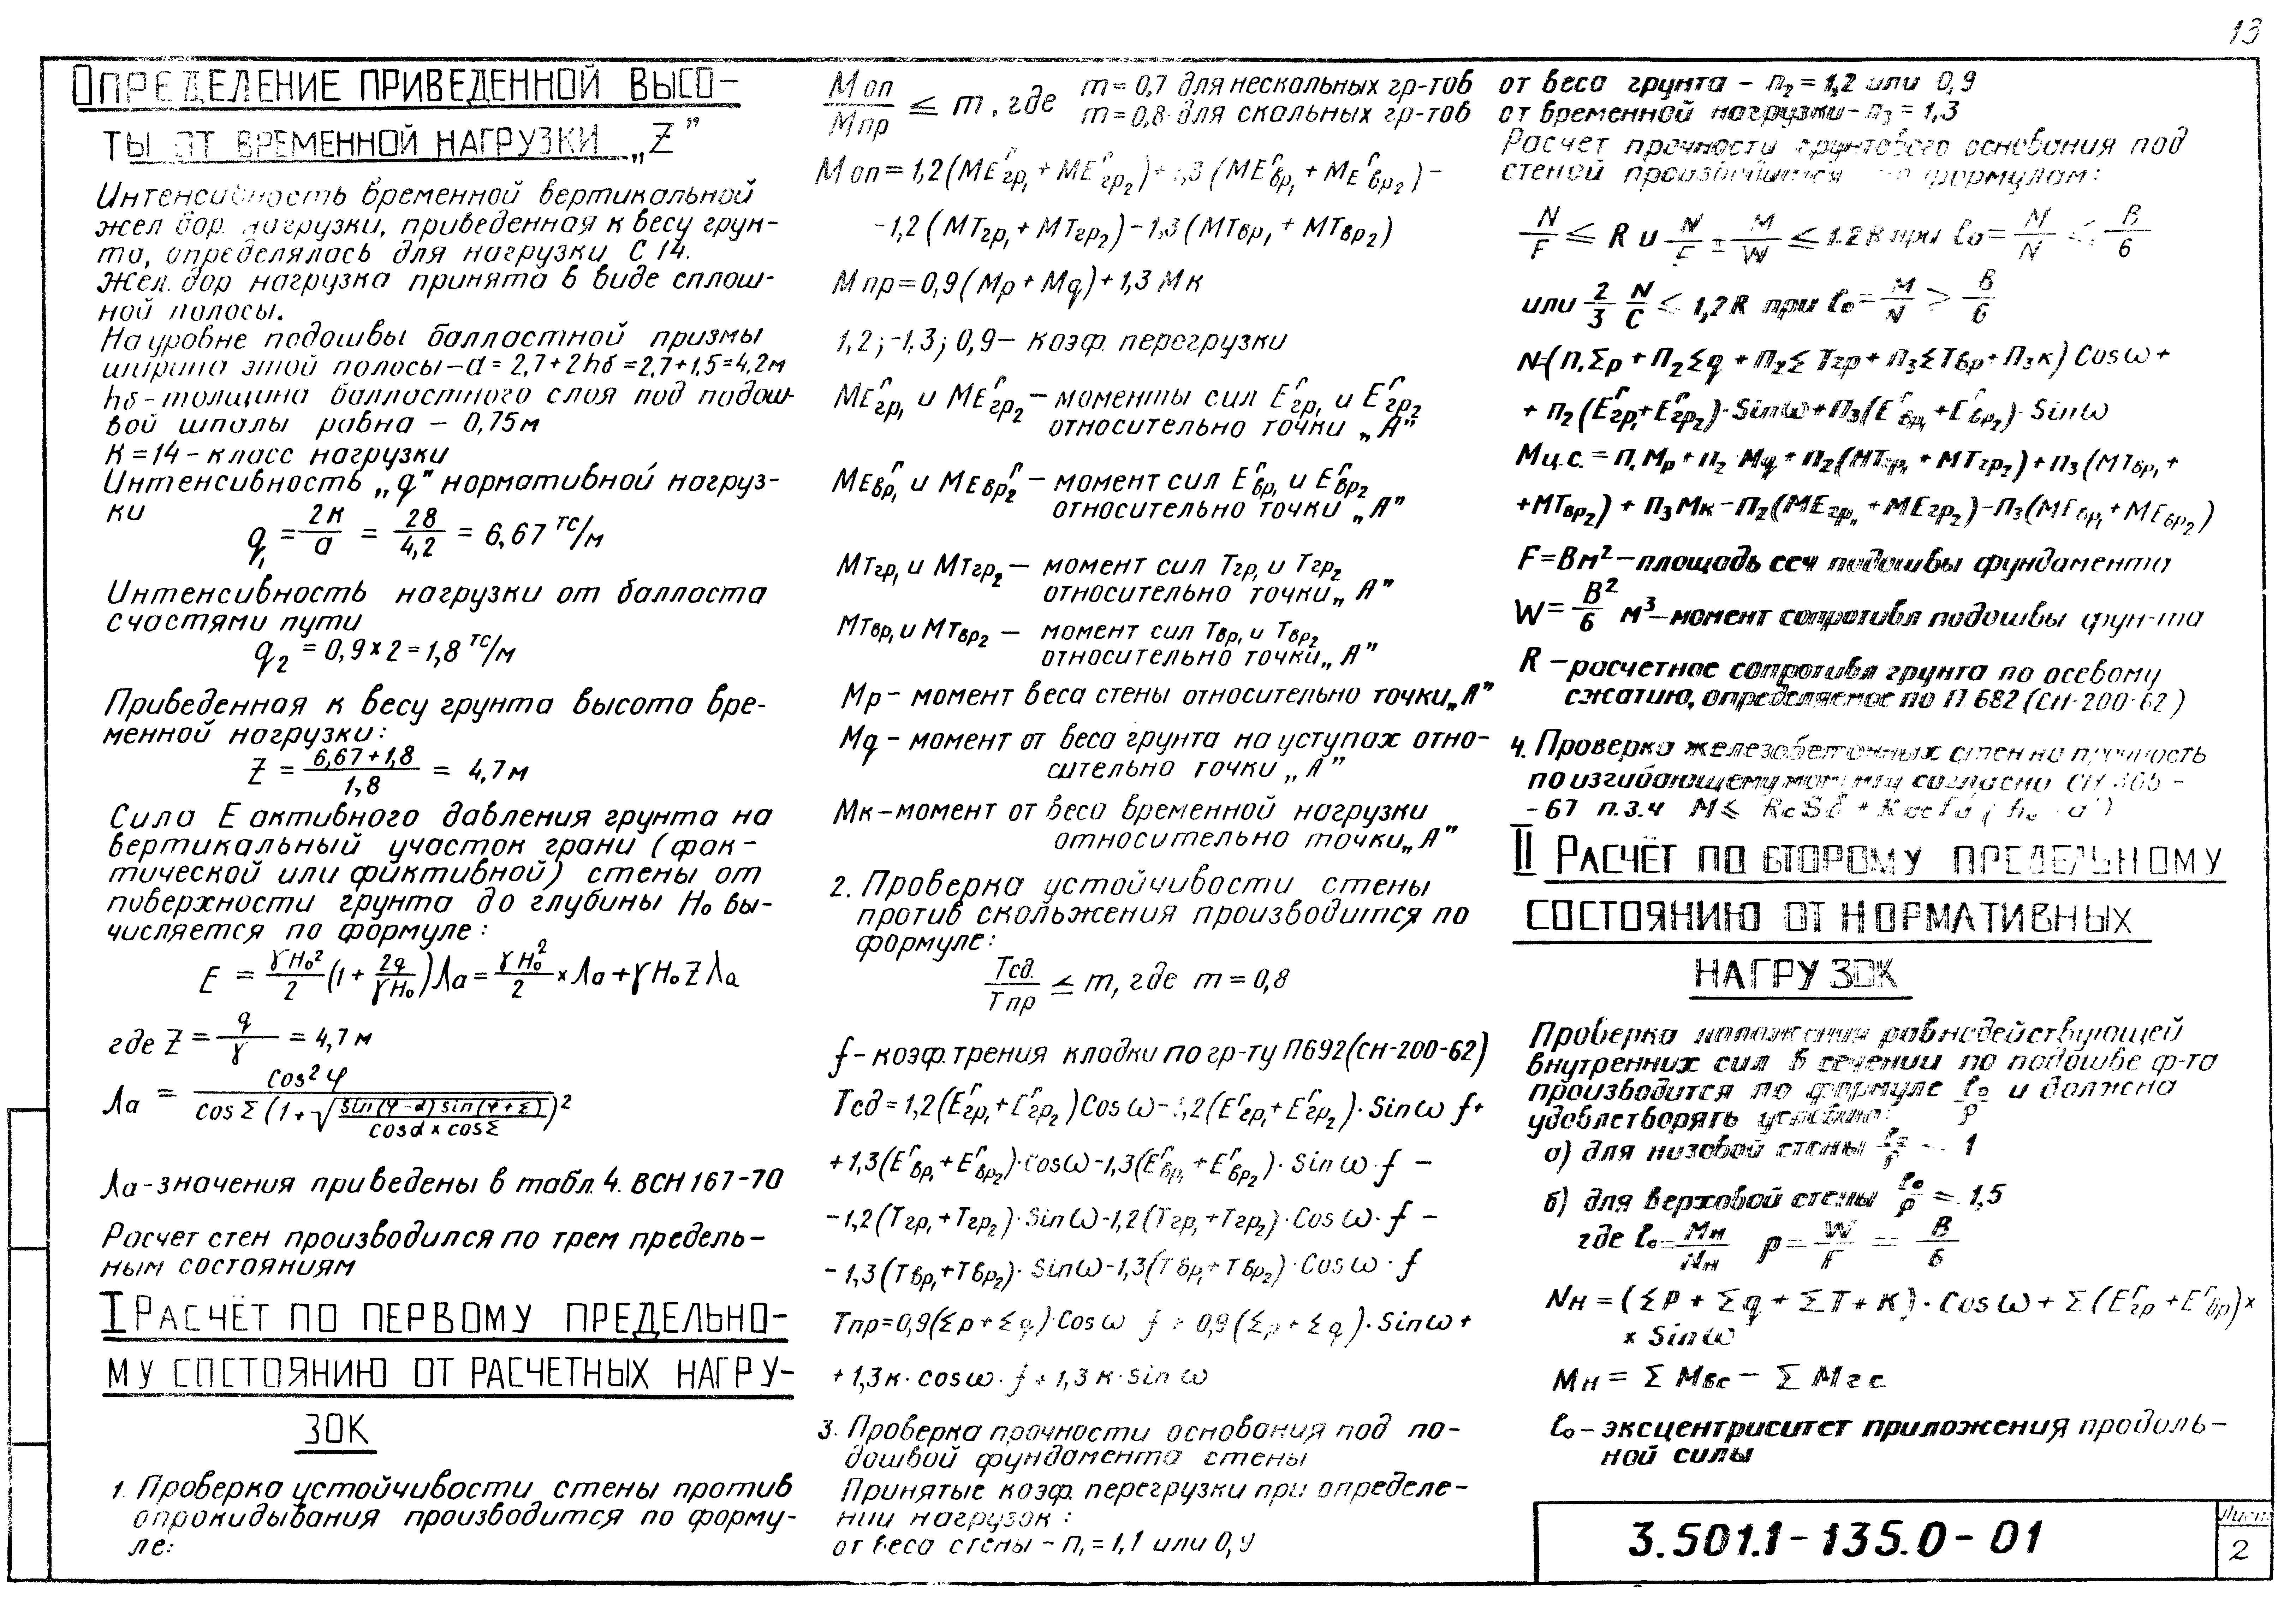 13
ОПРЕДЕЛЕНИЕ ПРИВЕДЕННОЙ ВЫСО-
ТЫ ОТ ВРЕМЕННОЙ НАГРУЗКИ „Z”
Интенсивность временной вертикальной
жел дор. нагрузки, приведенная к весу грун-
та, определялась для нагрузки С 14.
Жел. дор нагрузка принята в виде сплош-
ной полосы.
На уровне подошвы балластной призмы
ширина этой полосы – a = 2,7 + 2hб = 2,7 + 1,5 = 4,2 м
hб – толщина балластного слоя под подош-
вой шпалы равна – 0,75 м
К = 14 – класс нагрузки
Интенсивность „q” нормативной нагруз-
ки
q₁ = 2к/a = 28/4,2 = 6,67 тс/м
Интенсивность нагрузки от балласта
с частями пути
q₂ = 0,9 × 2 = 1,8 тс/м
Приведенная к весу грунта высота вре-
менной нагрузки:
Z = (6,67 + 1,8)/1,8 = 4,7 м
Сила Е активного давления грунта на
вертикальный участок грани (фак-
тической или фиктивной) стены от
поверхности грунта до глубины Н₀ вы-
числяется по формуле:
E = γH₀²/2 (1 + 2q/γH₀) λa = γH₀²/2 × λa + γH₀Zλa
где Z = q/γ = 4,7 м
λa = cos²φ / cos Σ (1 + √(sin(φ-α) sin(φ+Σ) / cosα × cosΣ))²
λa – значения приведены в табл. 4. ВСН 167-70
Расчет стен производился по трем предель-
ным состояниям
I РАСЧЁТ ПО ПЕРВОМУ ПРЕДЕЛЬНО-
МУ СОСТОЯНИЮ ОТ РАСЧЕТНЫХ НАГРУ-
ЗОК
1. Проверка устойчивости стены против
опрокидывания производится по форму-
ле:
Mоп/Mпр ≤ m, где m = 0,7 для нескальных гр-тов
m = 0,8 для скальных гр-тов
Mоп = 1,2 (MEᴦгр₁ + MEᴦгр₂) + 1,3 (MEᴦвр₁ + MEᴦвр₂) –
– 1,2 (MTгр₁ + MTгр₂) – 1,3 (MTвр₁ + MTвр₂)
Mпр = 0,9 (Mp + Mq) + 1,3 Mк
1,2; -1,3; 0,9 – коэф. перегрузки
MEᴦгр₁ и MEᴦгр₂ – моменты сил Eᴦгр₁ и Eᴦгр₂
относительно точки „А”
MEᴦвр₁ и MEᴦвр₂ – момент сил Eᴦвр₁ и Eᴦвр₂
относительно точки „А”
MTгр₁ и MTгр₂ – момент сил Tгр₁ и Tгр₂
относительно точки „А”
MTвр₁ и MTвр₂ – момент сил Tвр₁ и Tвр₂
относительно точки „А”
Mp – момент веса стены относительно точки „А”
Mq – момент от веса грунта на уступах отно-
сительно точки „А”
Mк – момент от веса временной нагрузки
относительно точки „А”
2. Проверка устойчивости стены
против скольжения производится по
формуле:
Tсд./Tпр ≤ m, где m = 0,8
f – коэф. трения кладки по гр-ту П692 (СН-200-62)
Tсд = 1,2(Eᴦгр₁ + Eᴦгр₂) Cos ω – 1,2(Eᴦгр₁ + Eᴦгр₂) · Sin ω f +
+ 1,3(Eᴦвр₁ + Eᴦвр₂) · cos ω – 1,3(Eᴦвр₁ + Eᴦвр₂) · Sin ω · f –
– 1,2(Tгр₁ + Tгр₂) · Sin ω – 1,2(Tгр₁ + Tгр₂) · Cos ω · f –
– 1,3(Tвр₁ + Tвр₂) · Sin ω – 1,3(Tвр₁ + Tвр₂) · Cos ω · f
Tпр = 0,9(Σp + Σq) · Cos ω f + 0,9(Σp + Σq) · Sin ω +
+ 1,3к · cos ω · f + 1,3к · sin ω
3. Проверка прочности основания под по-
дошвой фундамента стены
Принятые коэф. перегрузки при определе-
нии нагрузок:
от веса стены – п₁ = 1,1 или 0,9
от веса грунта – п₂ = 1,2 или 0,9
от временной нагрузки – п₃ = 1,3
Расчет прочности грунтового основания под
стеной производится по формулам:
N/F ≤ R и N/F ± M/W ≤ 1.2R при ℓ₀ = M/N ≤ B/6
или 2/3 N/C ≤ 1,2R при ℓ₀ = M/N > B/6
N = (п₁Σp + п₂Σq + п₂ΣTгр + п₃ΣTвр + п₃к) Cos ω +
+ п₂(Eᴦгр₁ + Eᴦгр₂) · Sin ω + п₃(Eᴦвр₁ + Eᴦвр₂) · Sin ω
Mц.с. = п₁Mp + п₂ Mq + п₂(MTгр₁ + MTгр₂) + п₃(MTвр₁ +
+ MTвр₂) + п₃Mк – п₂(MEгр₁ + MEгр₂) – п₃(MEᴦвр₁ + MEвр₂)
F = Bм² – площадь сеч подошвы фундамента
W = B²/6 м³ – момент сопротивл подошвы фун-та
R – расчетное сопротивл грунта по осевому
сжатию, определяемое по П. 682 (СН-200-62)
4. Проверка железобетонных стен на прочность
по изгибающему моменту согласно СН 365 –
– 67 п.3.4 M ≤
II РАСЧЁТ ПО ВТОРОМУ ПРЕДЕЛЬНОМУ
СОСТОЯНИЮ ОТ НОРМАТИВНЫХ
НАГРУЗОК
Проверка положения равнодействующей
внутренних сил в сечении по подошве ф-та
производится по формуле ℓ₀/ρ и должна
удовлетворять условию:
а) для низовой стены ℓ₀/ρ 1
б) для верховой стены ℓ₀/ρ = 1,5
где ℓ₀ = Mн/Nн ρ = W/F = B/6
Nн = (ΣP + Σq + ΣT + K) · Cos ω + Σ(Eᴦгр + Eᴦвр) ×
× Sin ω
Mн = Σ Mвс – Σ Mгс
ℓ₀ – эксцентриситет приложения продоль-
ной силы
3.501.1-135.0-01
Лист
2